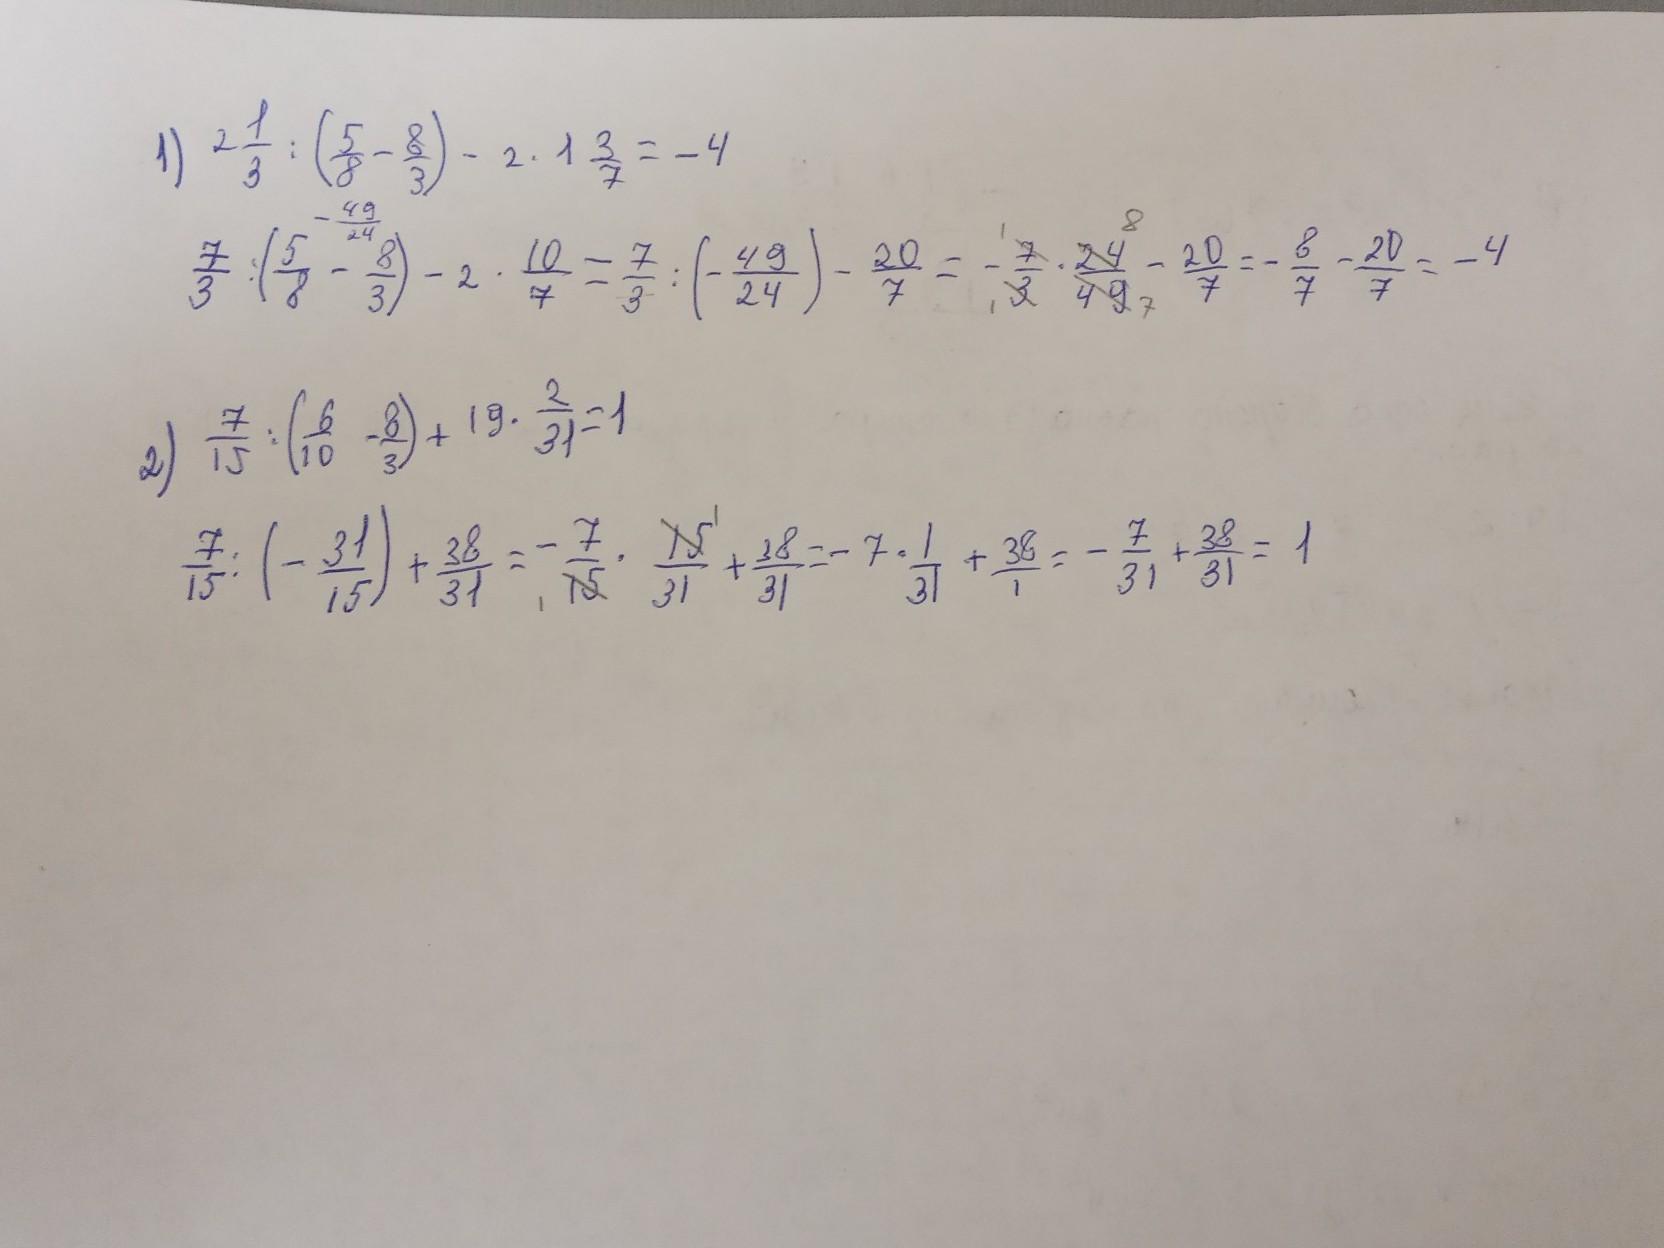 1) 2 1/3 : (5/8 - 8/3) - 2 · 1 3/7 = -4
-49/24
7/3 : (5/8 - 8/3) - 2 · 10/7 = 7/3 : (-49/24) - 20/7 = - 1 7/3 1 · 24 8/49 7 - 20/7 = - 8/7 - 20/7 = -4
2) 7/15 : (6/10 - 8/3) + 19 · 2/31 = 1
7/15 : (- 31/15) + 38/31 = - 7/15 1 · 15 1/31 + 38/31 = - 7 · 1/31 + 38/1 = - 7/31 + 38/31 = 1